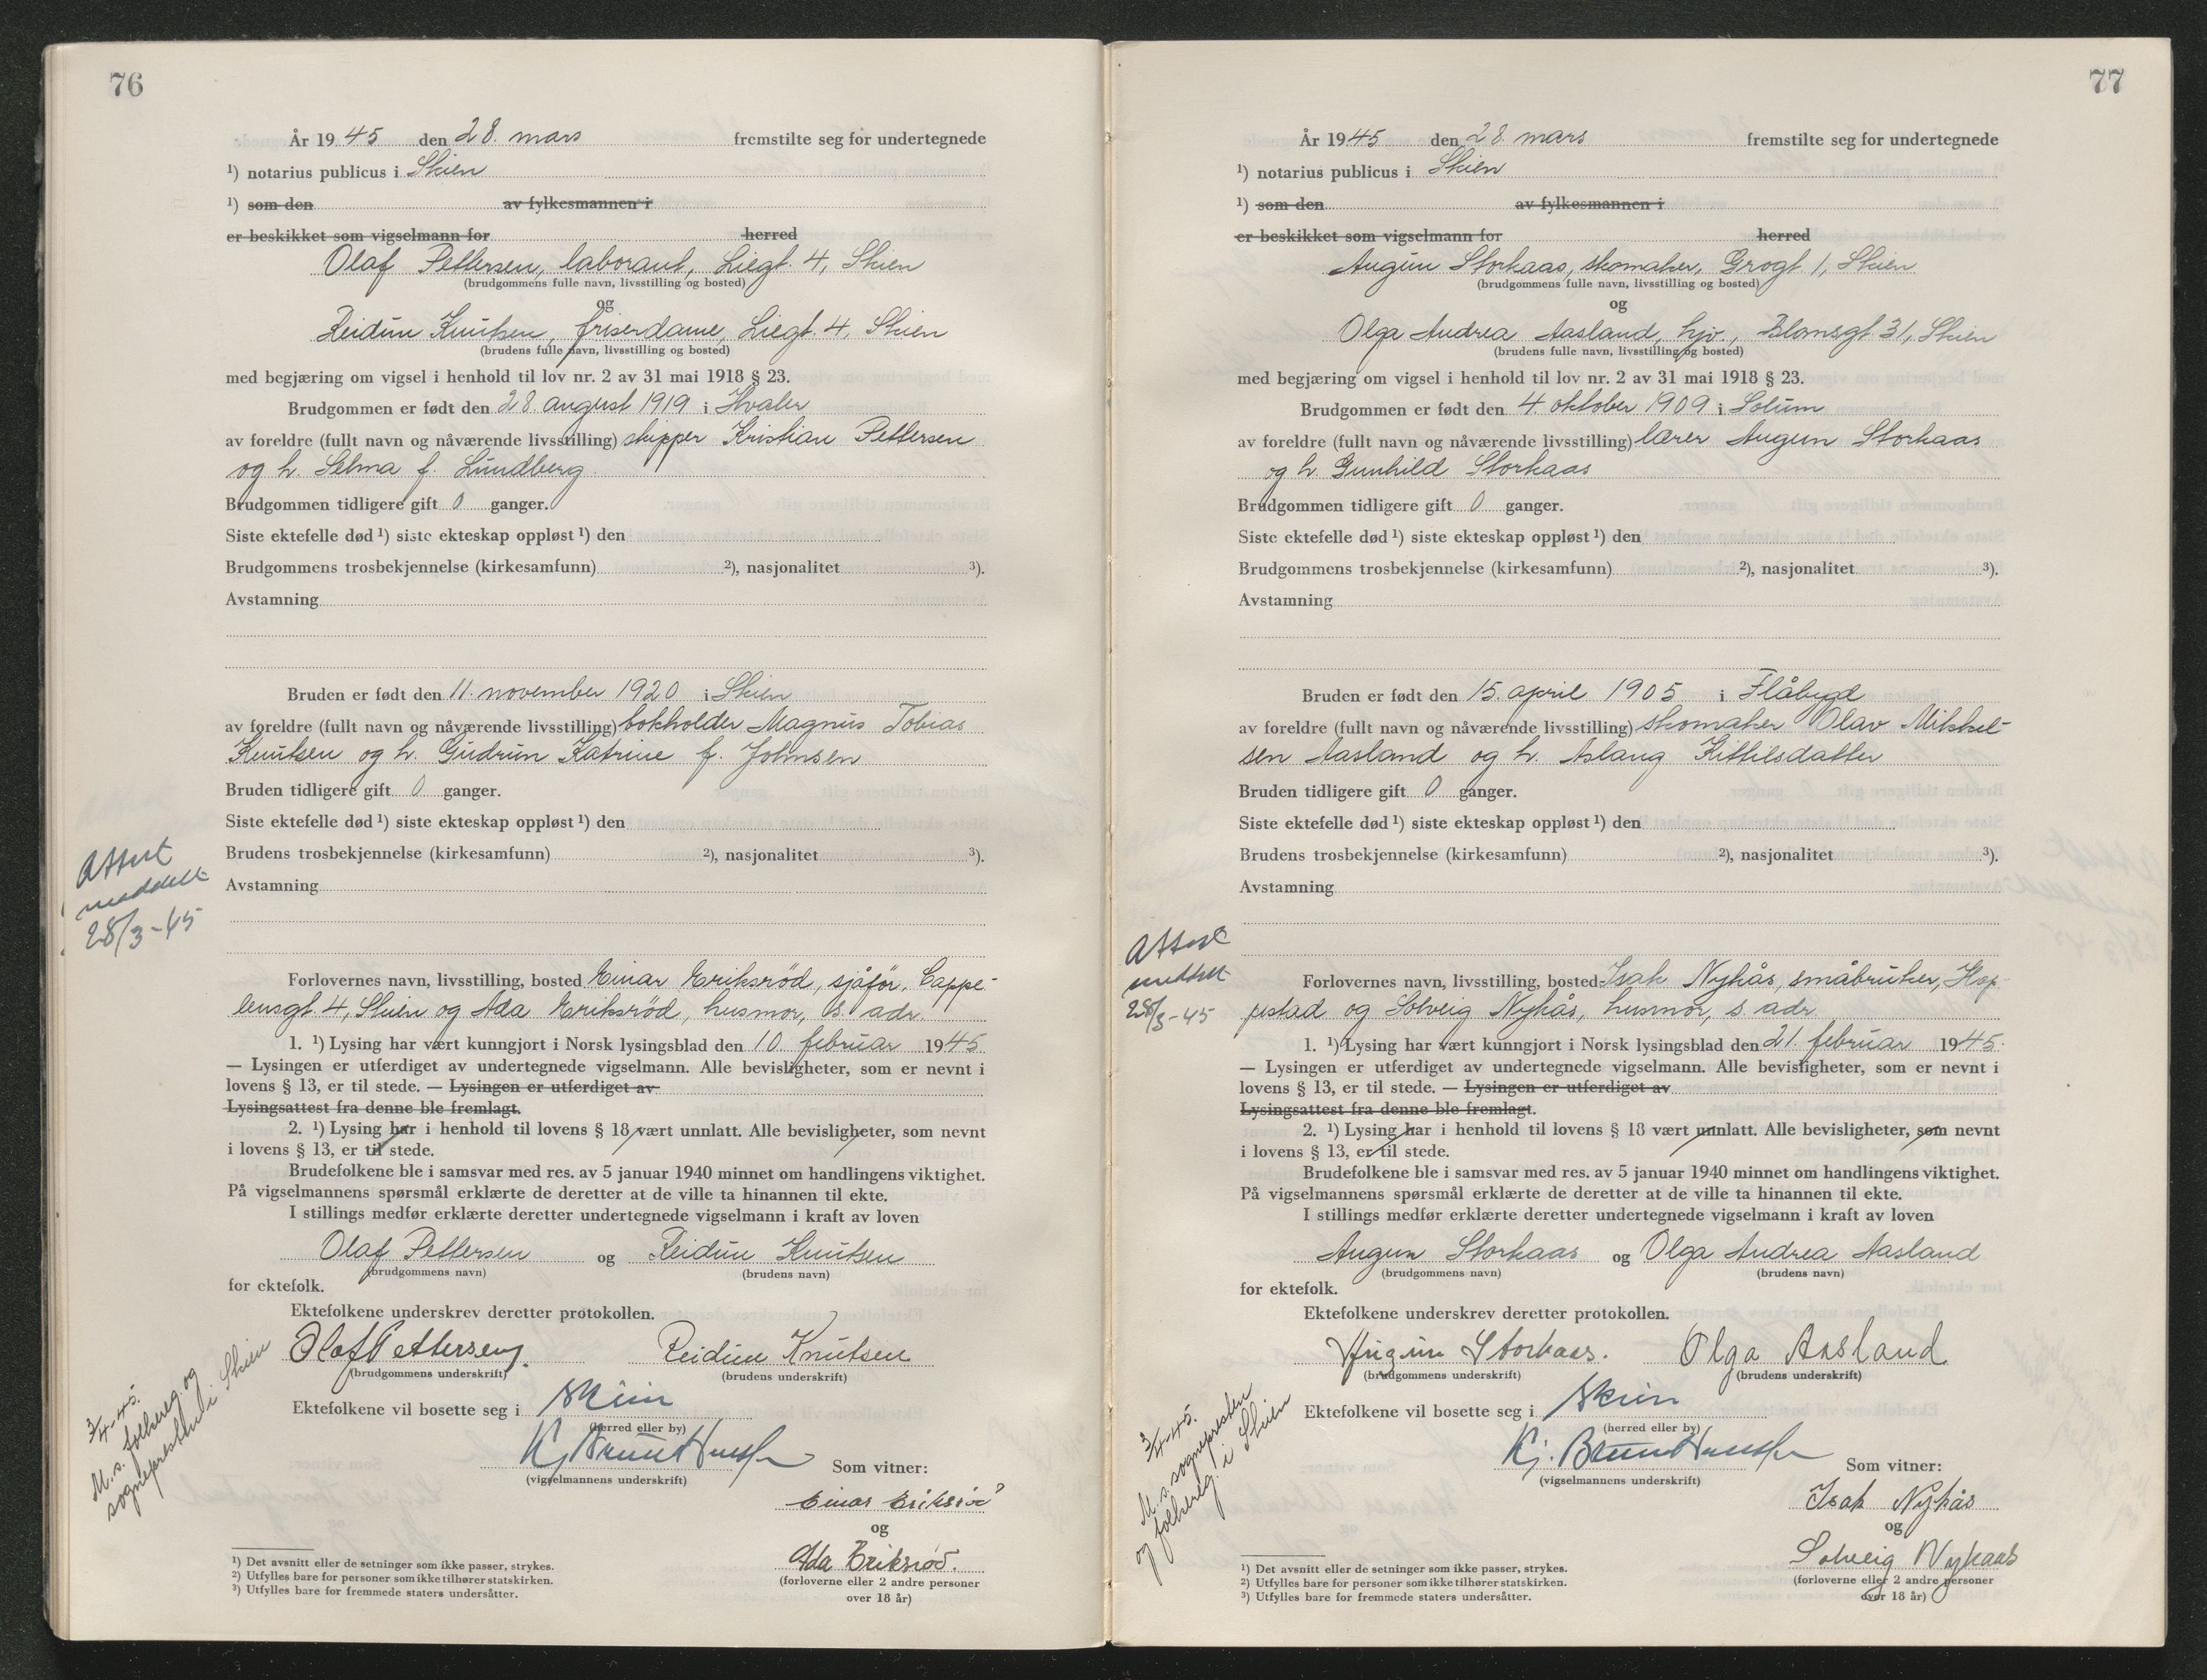 76
År 1945 den 28. mars fremstilte seg for undertegnede
¹) notarius publicus i Skien
¹) som den av fylkesmannen i
er beskikket som vigselmann for herred
Olaf Pettersen, laborant, Liegt. 4, Skien
(brudgommens fulle navn, livsstilling og bosted)
og
Reidun Knutsen, friserdame, Liegt. 4, Skien
(brudens fulle navn, livsstilling og bosted)
med begjæring om vigsel i henhold til lov nr. 2 av 31 mai 1918 § 23.
Brudgommen er født den 28. august 1919 i Hvaler
av foreldre (fullt navn og nåværende livsstilling) skipper Kristian Pettersen
og h. Selma f. Lundberg
Brudgommen tidligere gift 0 ganger.
Siste ektefelle død ¹) siste ekteskap oppløst ¹) den
Brudgommens trosbekjennelse (kirkesamfunn) ²), nasjonalitet ³).
Avstamning
Bruden er født den 11. november 1920 i Skien
av foreldre (fullt navn og nåværende livsstilling) bokholder Magnus Tobias
Knutsen og h. Gudrun Katrine f. Johnsen
Bruden tidligere gift 0 ganger.
Siste ektefelle død ¹) siste ekteskap oppløst ¹) den
Brudens trosbekjennelse (kirkesamfunn) ²), nasjonalitet ³).
Avstamning
Attest
meddelt
28/3-45
Forlovernes navn, livsstilling, bosted Einar Eriksrød, sjåfør, Cappe-
lensgt. 4, Skien og Ada Eriksrød, husmor, s. adr.
1. ¹) Lysing har vært kunngjort i Norsk lysingsblad den 10. februar 1945
— Lysingen er utferdiget av undertegnede vigselmann. Alle bevisligheter, som er nevnt i
lovens § 13, er til stede. — Lysingen er utferdiget av
Lysingsattest fra denne ble fremlagt.
2. ¹) Lysing har i henhold til lovens § 18 vært unnlatt. Alle bevisligheter, som nevnt
i lovens § 13, er til stede.
Brudefolkene ble i samsvar med res. av 5 januar 1940 minnet om handlingens viktighet.
På vigselmannens spørsmål erklærte de deretter at de ville ta hinannen til ekte.
I stillings medfør erklærte deretter undertegnede vigselmann i kraft av loven
Olaf Pettersen og Reidun Knutsen
(brudgommens navn) (brudens navn)
for ektefolk.
Ektefolkene underskrev deretter protokollen.
Olaf Pettersen. Reidun Knutsen
(brudgommens underskrift) (brudens underskrift)
Ektefolkene vil bosette seg i Skien
(herred eller by)
3/4-45.
M. s. folkereg. og
sognepresten i Skien
(vigselmannens underskrift) Som vitner:
Einar Eriksrød
og
Ada Eriksrød.
(forloverne eller 2 andre personer
over 18 år)
¹) Det avsnitt eller de setninger som ikke passer, strykes.
²) Utfylles bare for personer som ikke tilhører statskirken.
³) Utfylles bare for fremmede staters undersåtter.
77
År 1945 den 28. mars fremstilte seg for undertegnede
¹) notarius publicus i Skien
¹) som den av fylkesmannen i
er beskikket som vigselmann for herred
Augun Storkaas, skomaker, Grogt 1, Skien
(brudgommens fulle navn, livsstilling og bosted)
og
Olga Andrea Aasland, hjv., Blomsgt. 31, Skien
(brudens fulle navn, livsstilling og bosted)
med begjæring om vigsel i henhold til lov nr. 2 av 31 mai 1918 § 23.
Brudgommen er født den 4. oktober 1909 i Solum
av foreldre (fullt navn og nåværende livsstilling) lærer Augun Storkaas
og h. Gunhild Storkaas
Brudgommen tidligere gift 0 ganger.
Siste ektefelle død ¹) siste ekteskap oppløst ¹) den
Brudgommens trosbekjennelse (kirkesamfunn) ²), nasjonalitet ³).
Avstamning
Bruden er født den 15. april 1905 i Flåbygd
av foreldre (fullt navn og nåværende livsstilling) skomaker Olav Mikkel-
sen Aasland og h. Aslaug Kittilsdatter
Bruden tidligere gift 0 ganger.
Siste ektefelle død ¹) siste ekteskap oppløst ¹) den
Brudens trosbekjennelse (kirkesamfunn) ²), nasjonalitet ³).
Avstamning
Attest
meddelt
28/3-45
Forlovernes navn, livsstilling, bosted Isak Nykås, småbruker, Hop-
pestad og Solveig Nykås, husmor, s. adr.
1. ¹) Lysing har vært kunngjort i Norsk lysingsblad den 21. februar 1945.
— Lysingen er utferdiget av undertegnede vigselmann. Alle bevisligheter, som er nevnt i
lovens § 13, er til stede. — Lysingen er utferdiget av
Lysingsattest fra denne ble fremlagt.
2. ¹) Lysing har i henhold til lovens § 18 vært unnlatt. Alle bevisligheter, som nevnt
i lovens § 13, er til stede.
Brudefolkene ble i samsvar med res. av 5 januar 1940 minnet om handlingens viktighet.
På vigselmannens spørsmål erklærte de deretter at de ville ta hinannen til ekte.
I stillings medfør erklærte deretter undertegnede vigselmann i kraft av loven
Augun Storkaas og Olga Andrea Aasland
(brudgommens navn) (brudens navn)
for ektefolk.
Ektefolkene underskrev deretter protokollen.
Augun Storkaas. Olga Aasland
(brudgommens underskrift) (brudens underskrift)
Ektefolkene vil bosette seg i Skien
(herred eller by)
3/4-45.
M. s. sognepresten
og folkereg. i Skien
Kj. Bruun
(vigselmannens underskrift) Som vitner:
Isak Nykås
og
Solveig Nykaas
(forloverne eller 2 andre personer
over 18 år)
¹) Det avsnitt eller de setninger som ikke passer, strykes.
²) Utfylles bare for personer som ikke tilhører statskirken.
³) Utfylles bare for fremmede staters undersåtter.